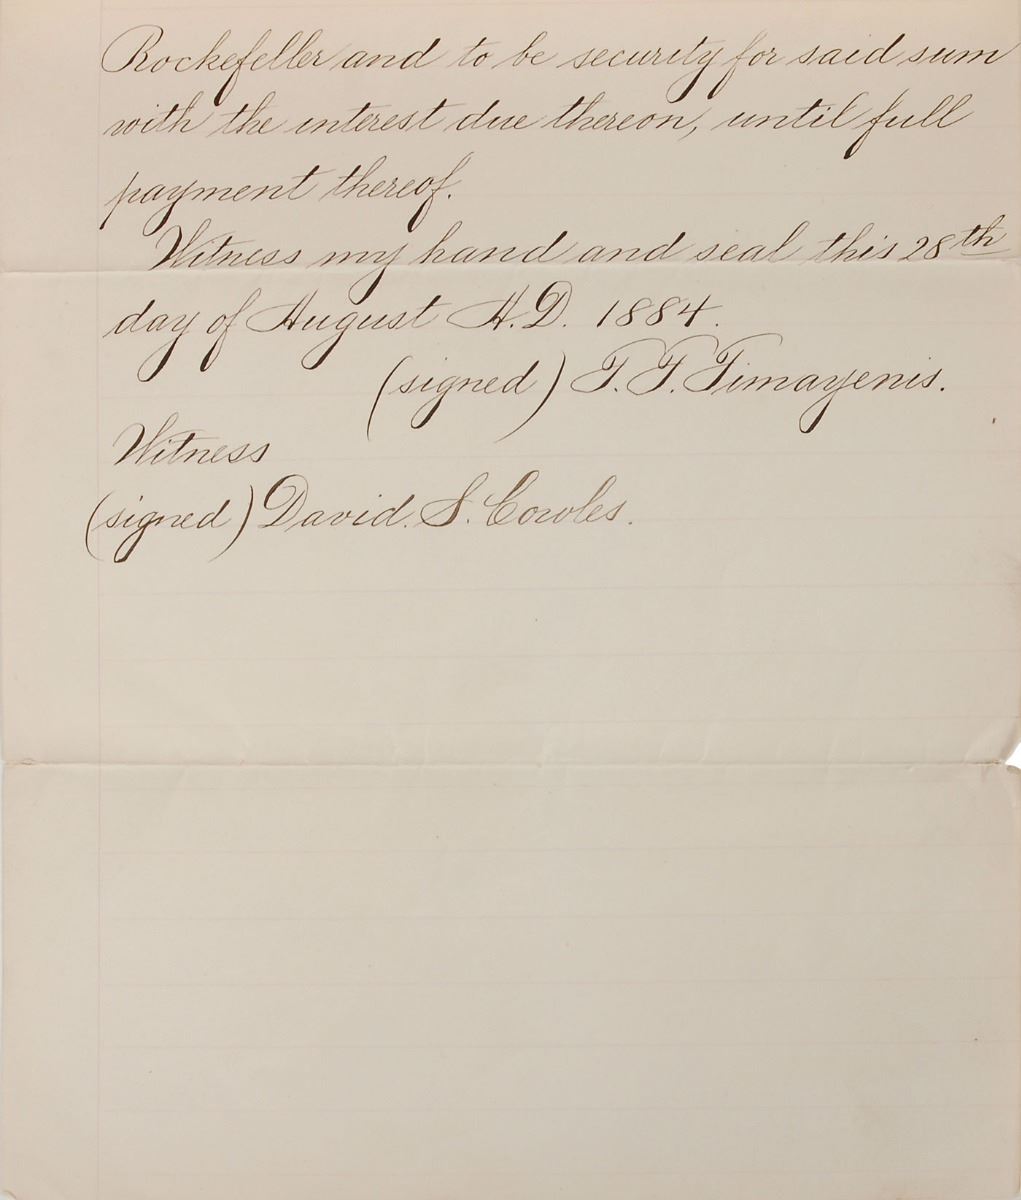 Rockefeller and to be security for said sum
with the interest due thereon, until full
payment thereof.
Witness my hand and seal this 28th
day of August A.D. 1884.
(signed) T. T. Timayenis.
Witness
(signed) David. S. Cowles.